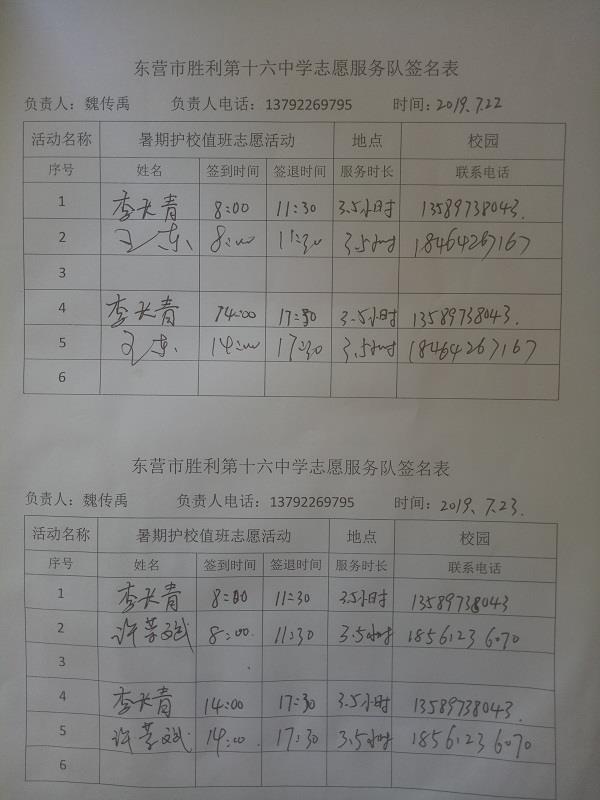 东营市胜利第十六中学志愿服务队签名表
负责人：魏传禹 负责人电话：13792269795 时间：2019.7.22
活动名称 暑期护校值班志愿活动 地点 校园
序号 姓名 签到时间 签退时间 服务时长 联系电话
1 李长青 8:00 11:30 3.5小时 13589738043.
2 王东 8:00 11:30 3.5小时 18464267167
3
4 李长青 14:00 17:30 3.5小时 13589738043.
5 王东 14:00 17:30 3.5小时 18464267167
6
东营市胜利第十六中学志愿服务队签名表
负责人：魏传禹 负责人电话：13792269795 时间：2019.7.23.
活动名称 暑期护校值班志愿活动 地点 校园
序号 姓名 签到时间 签退时间 服务时长 联系电话
1 李长青 8:00 11:30 3.5小时 13589738043
2 许 斌 8:00. 11:30 3.5小时 18561236070
3
4 李长青 14:00 17:30 3.5小时 13589738043.
5 许 斌 14:00. 17:30 3.5小时 18561236070
6